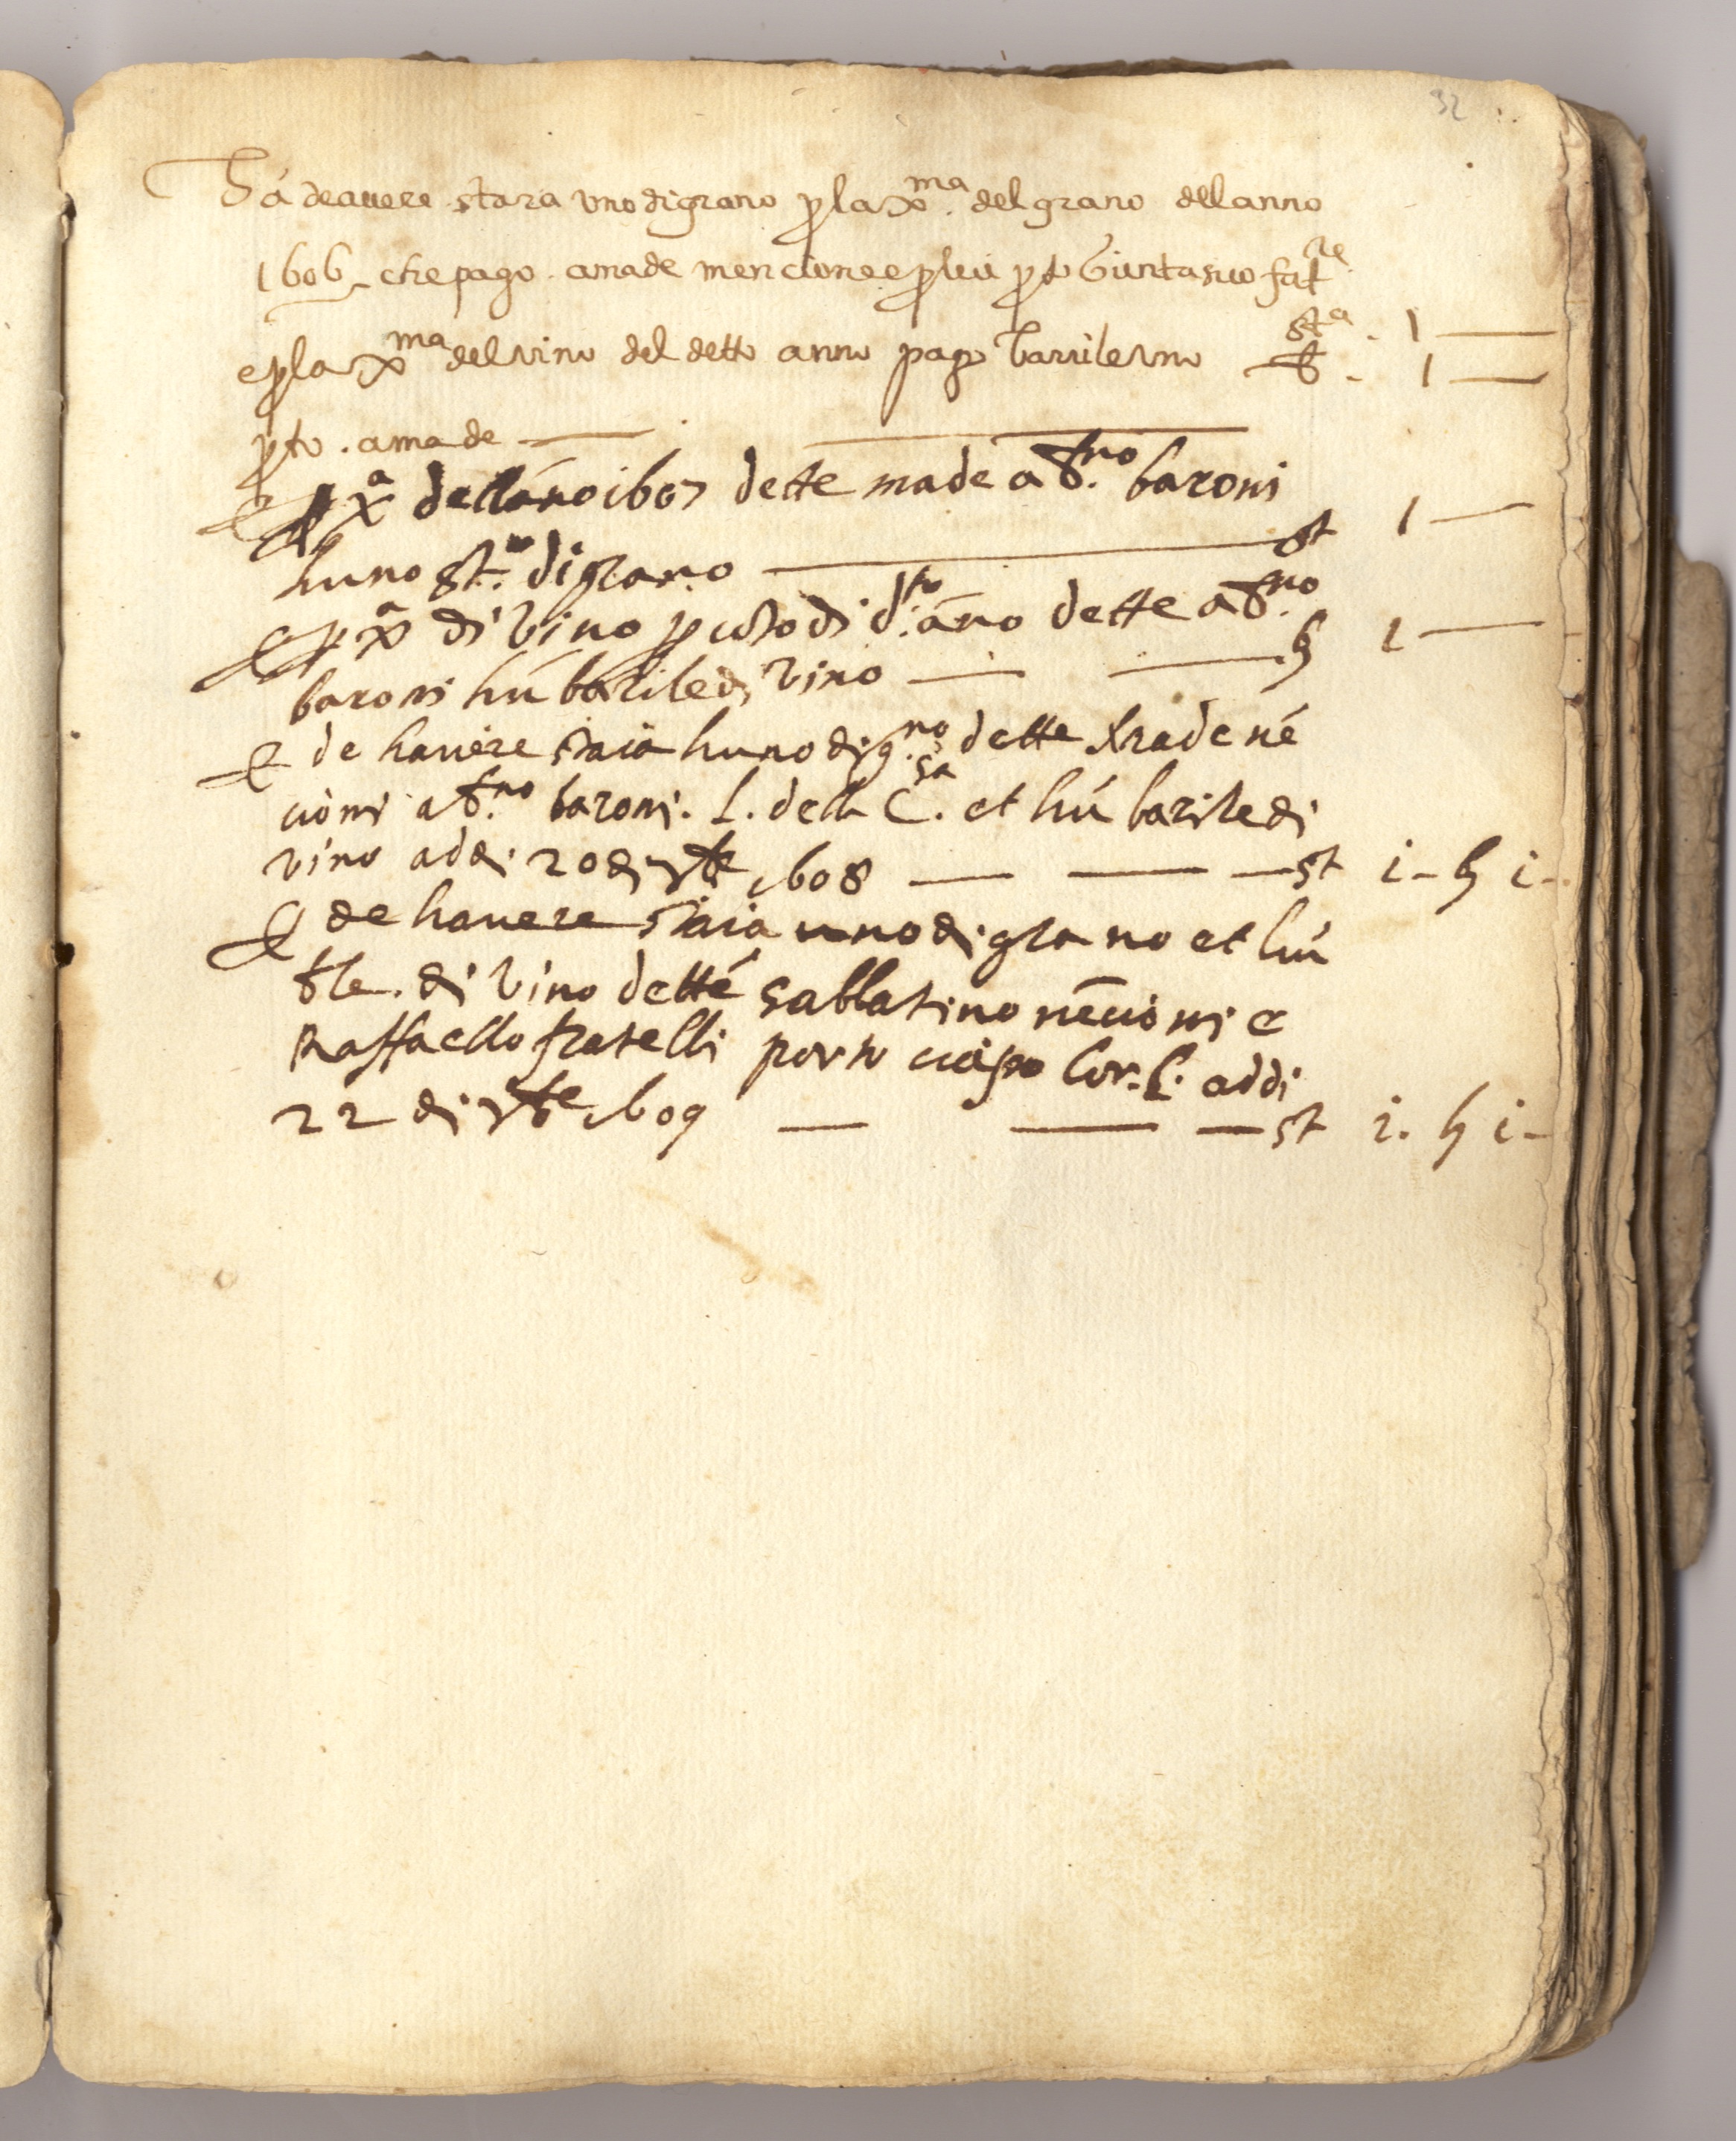 32
Ha de avere stara uno di grano p la Xma del grano dell anno
1606 che pago amade mencione e p lui pto Giunta suo fatre
e p la Xma del vino del detto anno pago barrile uno sta. 1 — b. 1 —
pto. amade —
E p Xa dell ano i607 dette made a bno baroni
huno st. di grano — st 1 —
E p Xa di vino p di dto ano dette a bno
baroni hú barile di vino — b 1 —
E de havere staia huno di gno dette né
cioni a bno baroni. L. della Csa. et hú barile di
vino addi 20 di 7bre i608 — st i - b i -
E de havere staia uno di grano et hú
ble. di vino dette sabbatino nēcioni e
Raffaello fratelli porto Lor. L. addi
22 di 7bre i609 — st i. b i -